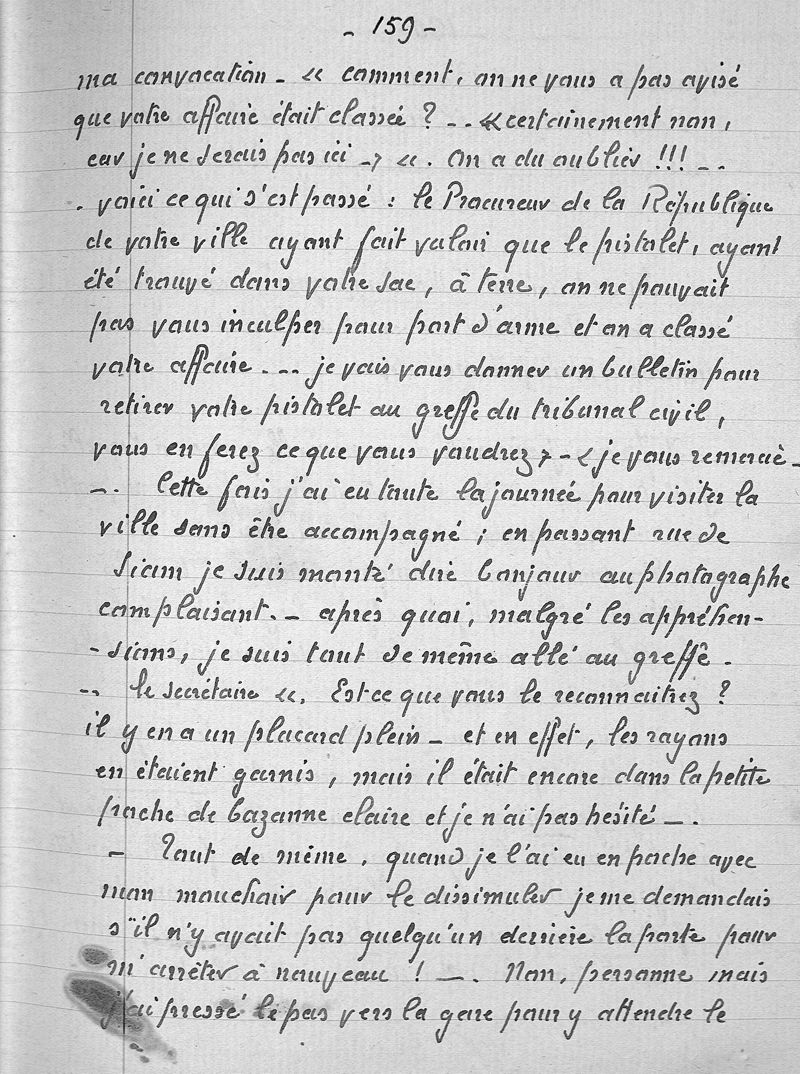 - 159 -
ma convocation - « comment, on ne vous a pas avisé
que votre affaire était classée ? -.. « certainement non,
car je ne serais pas ici -» «. On a du oublier !!! -..
. voici ce qui s'est passé : le Procureur de la République
de votre ville ayant fait valoir que le pistolet, ayant
été trouvé dans votre sac, à terre, on ne pouvait
pas vous inculper pour port d'arme et on a classé
votre affaire .-.. je vais vous donner un bulletin pour
retirer votre pistolet au greffe du tribunal civil,
vous en ferez ce que vous voudrez » - « je vous remercie -
-. Cette fois j'ai eu toute la journée pour visiter la
ville sans être accompagné ; en passant rue de
Siam je suis monté dire bonjour au photographe
complaisant. - après quoi, malgré les appréhen-
- sions, je suis tout de même allé au greffe -
-- le secrétaire «. Est-ce que vous le reconnaitrez ?
il y en a un placard plein - et en effet, les rayons
en étaient garnis, mais il était encore dans la petite
poche de bazanne claire et je n'ai pas hésité -.
- Tout de même, quand je l'ai eu en poche avec
mon mouchoir pour le dissimuler je me demandais
s'il n'y avait pas quelqu'un derrière la porte pour
m'arrêter à nouveau ! -. Non, personne mais
j'ai pressé le pas vers la gare pour y attendre le